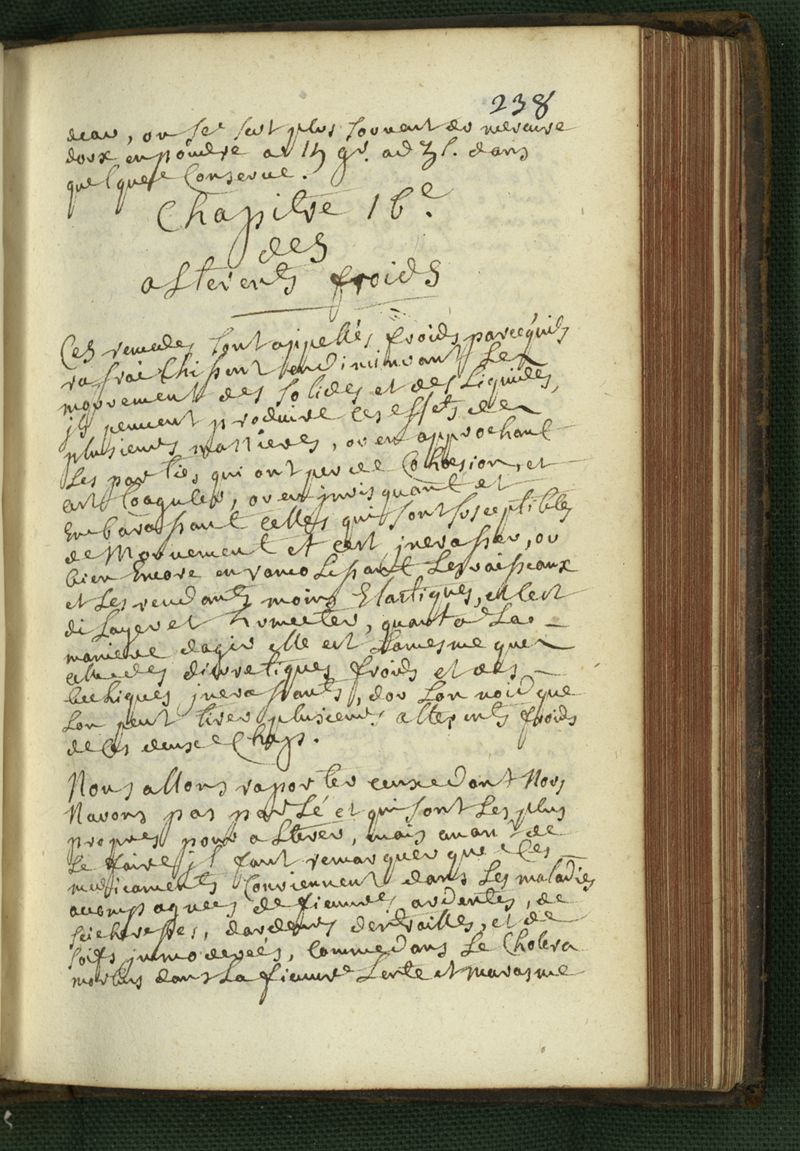 238
deau, on se sert plus souvent du mercure
doux en poudre a 15 gr. ad ʒ s. dans
quelque Conserve.
Chapitre 16e.
des
alterents froids
Ces remedes sont appellés froids parcequ'ils
rafraichissent en diminuant le
mouvement des solides et des liquides,
js peuvent produire ces effets de
plusieurs matieres, ou en approchant
les parties qui ont peu de Cohesion, et
cest Coaguler, ou en jnvisquant et
Embarassant celles qui sont susceptibles
de Mouvement et cest jncrasser, ou
bien Encore en ramolissant les vaisseaux
et les rendants moins Elastiques, et cest
dilayer et humecter, quant a La
maniere dagir elle est Lamesme que
celle des diuretiques froids et des
bechiques jncrassants, dou Lon void que
Lon peut tirer plusieurs alterents froids
de Ces deux Chap.
Nous allons raporter ceux dont Nous
Navons pas parlé et qui sont Les plus
propres pour alterer, mais avant de
Le faire jl faut remarquer que Ces
medicaments Conviennent dans Les maladies
accompagnees de fieuvres ardentes, de
seicheresses, dardeurs dentrailles, et de
soifs jmmoderées, Comme dans Le Cholera
morbus dans La fieuvre Lente et marasme